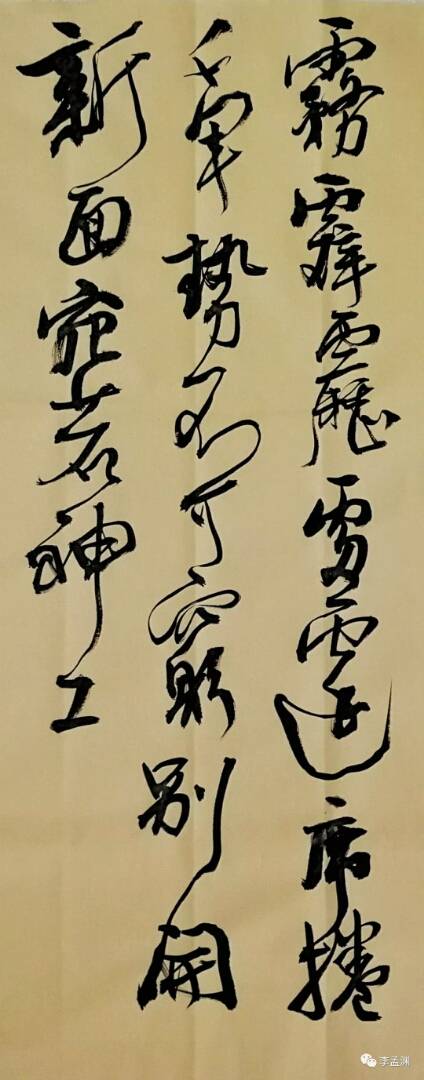 霧霹靂雷霆席捲
千軍勢不可窮別開
新面宛若神工
李孟渊